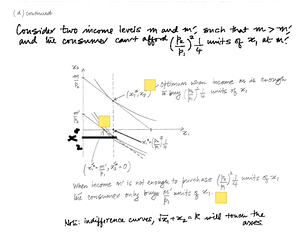 (d) continued
Consider two income levels m and m', such that m > m'
and the consumer can't afford (p₂/p₁)² 1/4 units of x₁ at m'.
x₂
optimum when income m is enough
to buy (p₂/p₁)² 1/4 units of x₁
(x₁*, x₂*)
x₁
x₁* = (p₂/p₁)² 1/4
(x₁* = m'/p₁, x₂* = 0)
When income m' is not enough to purchase (p₂/p₁)² 1/4 units of x₁
the consumer only buys m'/p₁ units of x₁.
Note: indifference curves, √x₁ + x₂ = k will touch the
axes